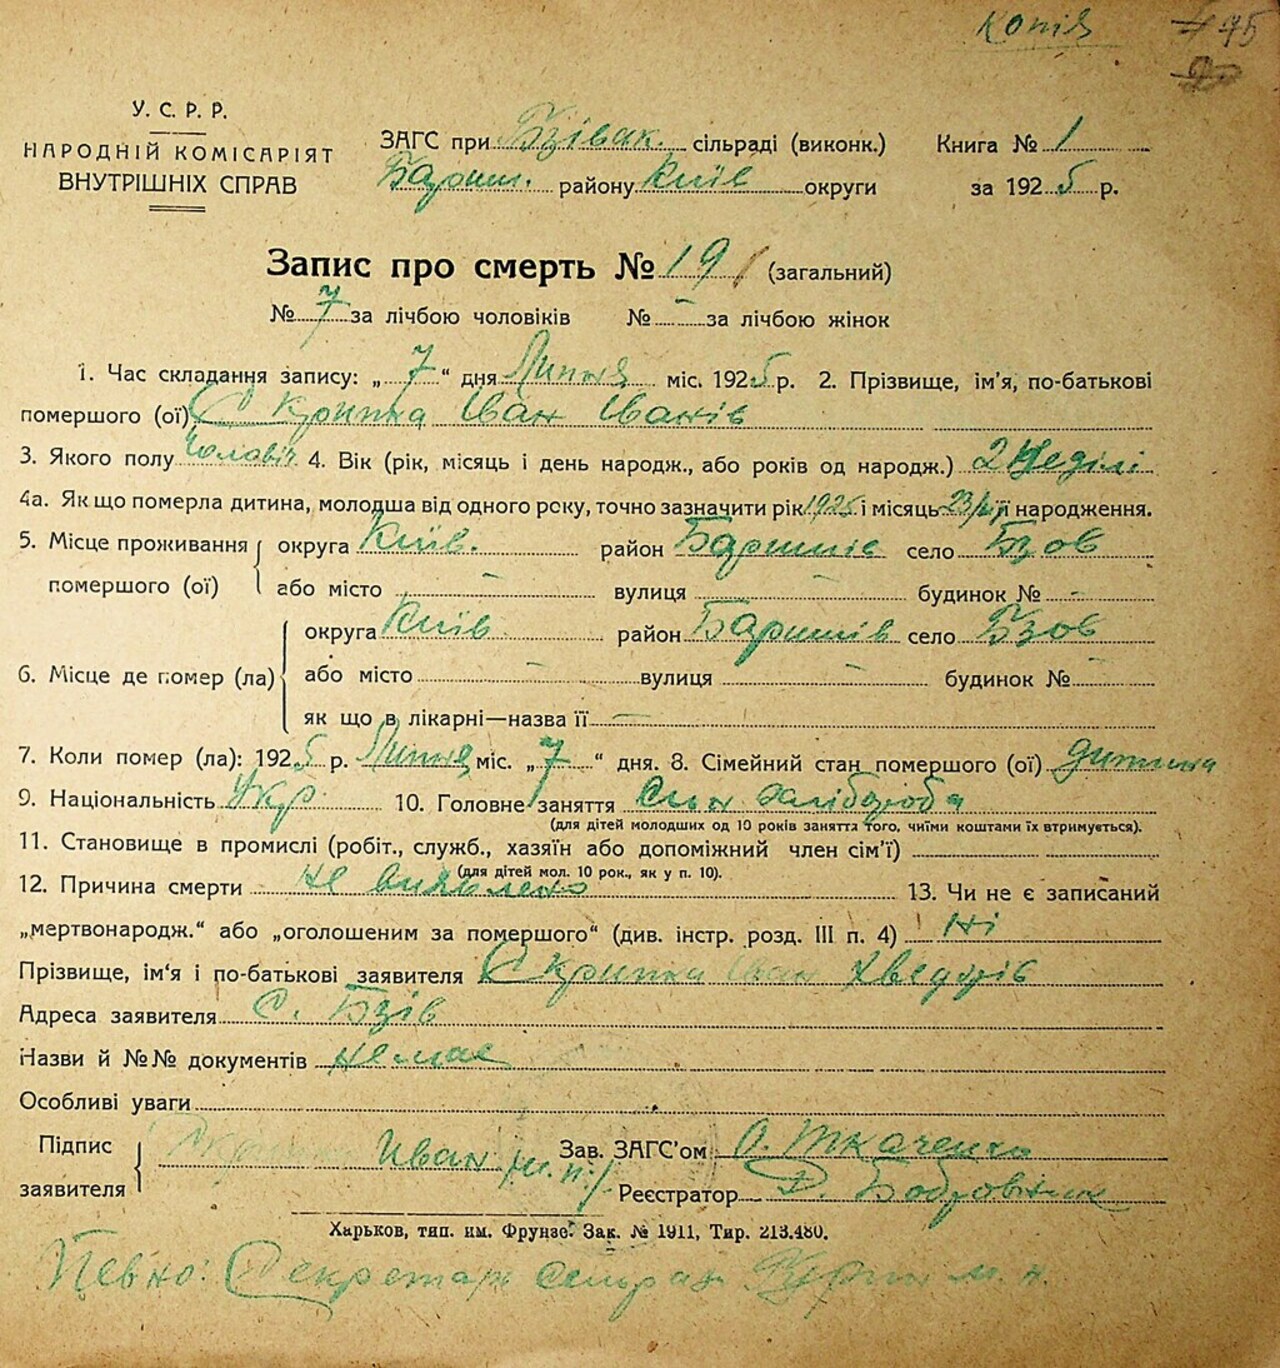 Копія
75
У. С. Р. Р.
НАРОДНІЙ КОМІСАРІЯТ
ВНУТРІШНІХ СПРАВ
ЗАГС при Бзівак. сільраді (виконк.) Книга № 1
Бариш. району Київ округи за 1925 р.
Запис про смерть № 19 (загальний)
№ 7 за лічбою чоловіків № - за лічбою жінок
1. Час складання запису: „7“ дня Липня міс. 1925 р. 2. Прізвище, ім’я, по-батькові
помершого (ої) Скрипка Іван Іванів
3. Якого полу чоловіч 4. Вік (рік, місяць і день народж., або років од народж.) 2 Неділі
4а. Як що померла дитина, молодша від одного року, точно зазначити рік 1925 і місяць 23/VI її народження.
5. Місце проживання помершого (ої) округа Київ. район Баришів село Бзов
або місто - вулиця - будинок № -
6. Місце де помер (ла) округа Київ район Баришів село Бзов
або місто - вулиця - будинок № -
як що в лікарні—назва її —
7. Коли помер (ла): 1925 р. Липня міс. „7“ дня. 8. Сімейний стан помершого (ої) дитина
9. Національність Укр. 10. Головне заняття Син хлібороба
(для дітей молодших од 10 років заняття того, чиїми коштами їх втримується).
11. Становище в промислі (робіт., служб., хазяїн або допоміжний член сім’ї)
(для дітей мол. 10 рок., як у п. 10).
12. Причина смерти не виявлено 13. Чи не є записаний
„мертвонародж.“ або „оголошеним за помершого“ (див. інстр. розд. III п. 4) Ні
Прізвище, ім’я і по-батькові заявителя Скрипка Іван Хведорів
Адреса заявителя С. Бзів
Назви й №№ документів немає
Особливі уваги
Підпис заявителя Иван /м. п./ Зав. ЗАГС’ом О. Ткаченко
Реєстратор Д. Бобровник
Харьков, тип. им. Фрунзе. Зак. № 1911, Тир. 213.480.
Певно: Секретарь сільради